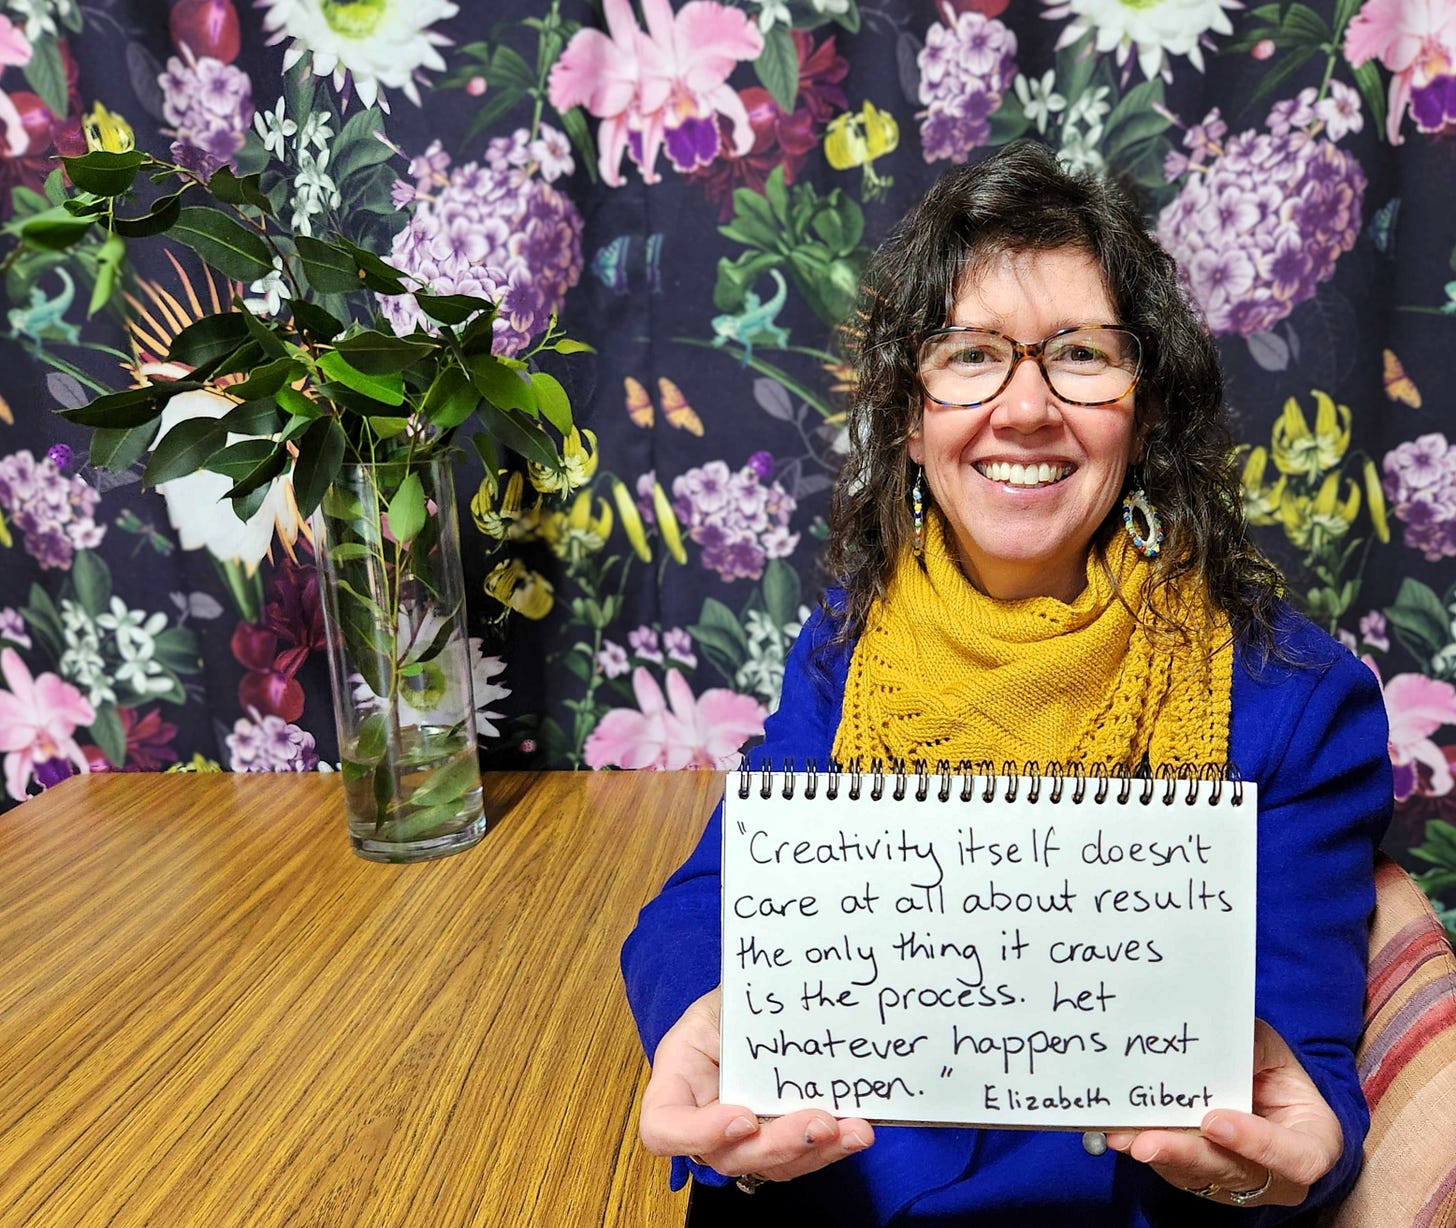 "Creativity itself doesn't
care at all about results
the only thing it craves
is the process. Let
whatever happens next
happen."
Elizabeth Gibert